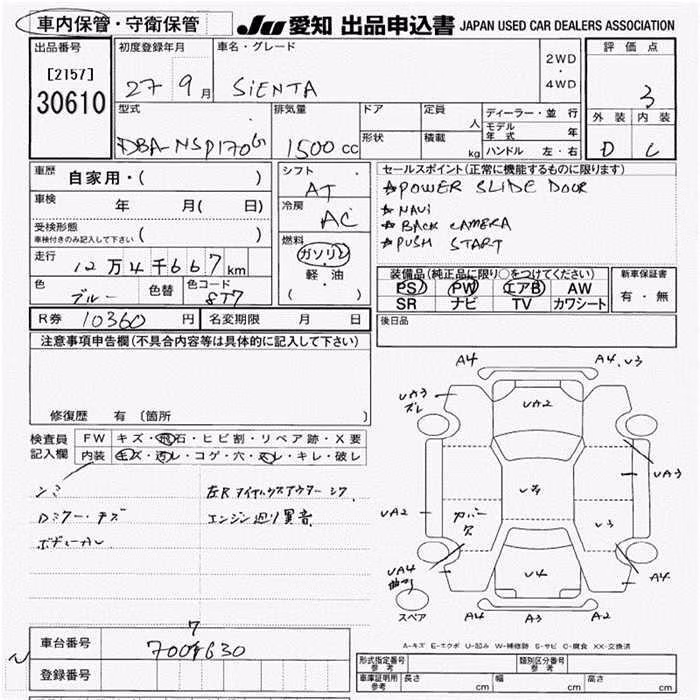 車内保管・守衛保管
JU 愛知 出品申込書 JAPAN USED CAR DEALERS ASSOCIATION
出品番号
[2157]
30610
初度登録年月
27年9月
車名・グレード
SiENTA
2WD
・
4WD
評価点
3
外装 内装
D C
型式
DBA-NSP170G
排気量
1500cc
ドア
形状
定員
人
積載
kg
ディーラー・並行
モデル年式 年
ハンドル 左・右
車歴 自家用・( )
車検 年 月( 日)
受検形態
車検付きのみ記入して下さい ( )
走行 12万4千667km
色 ブルー 色替 色コード 8T7
シフト
AT
冷房
AC
燃料
ガソリン
・
軽油
( ・ )
セールスポイント(正常に機能するものに限ります)
☆POWER SLIDE DOOR
☆NAVi
☆BACK CAMERA
☆PUSH START
装備品(純正品に限り○をつけてください)
PS PW エアB AW
SR ナビ TV カワシート
新車保証書
有・無
R券 10360円 名変期限 月 日
後日品
注意事項申告欄(不具合内容等は具体的に記入して下さい)
修復歴 有〔箇所 〕
検査員記入欄
FW キズ・飛石・ヒビ割・リペア跡・X要
内装 キズ・汚レ・コゲ・穴・スレ・キレ・破レ
シミ
Dミラー・キズ
エンジン廻り異音
A4
A4,U3
UA3
ズレ
UA2
UA3
UA2
カバー
欠
U3
UA4
曲り
U4
A4
スペア
A4
A3
A2
A-キズ E-エクボ U-凹み W-補修跡 S-サビ C-腐食 XX-交換済
車台番号
7
登録番号
形式指定番号
参考
類別区分番号
参考
車庫証明用
参考
長さ cm 幅 cm 高さ cm